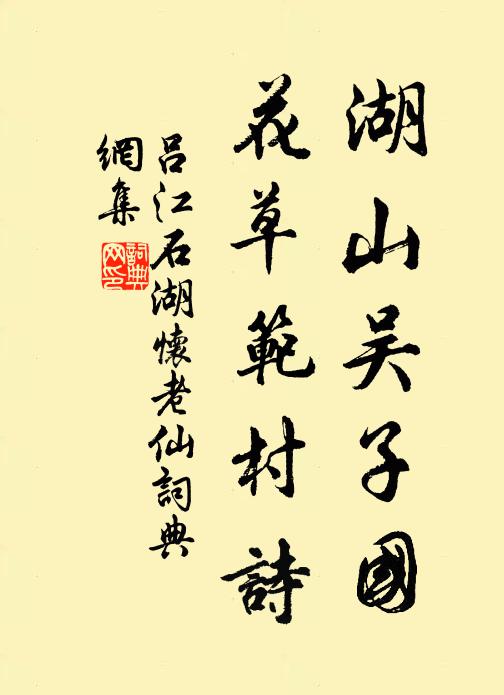 湖山吴子國
花草範村詩
吕江石湖懷老仙詞典
網集
詞典网印